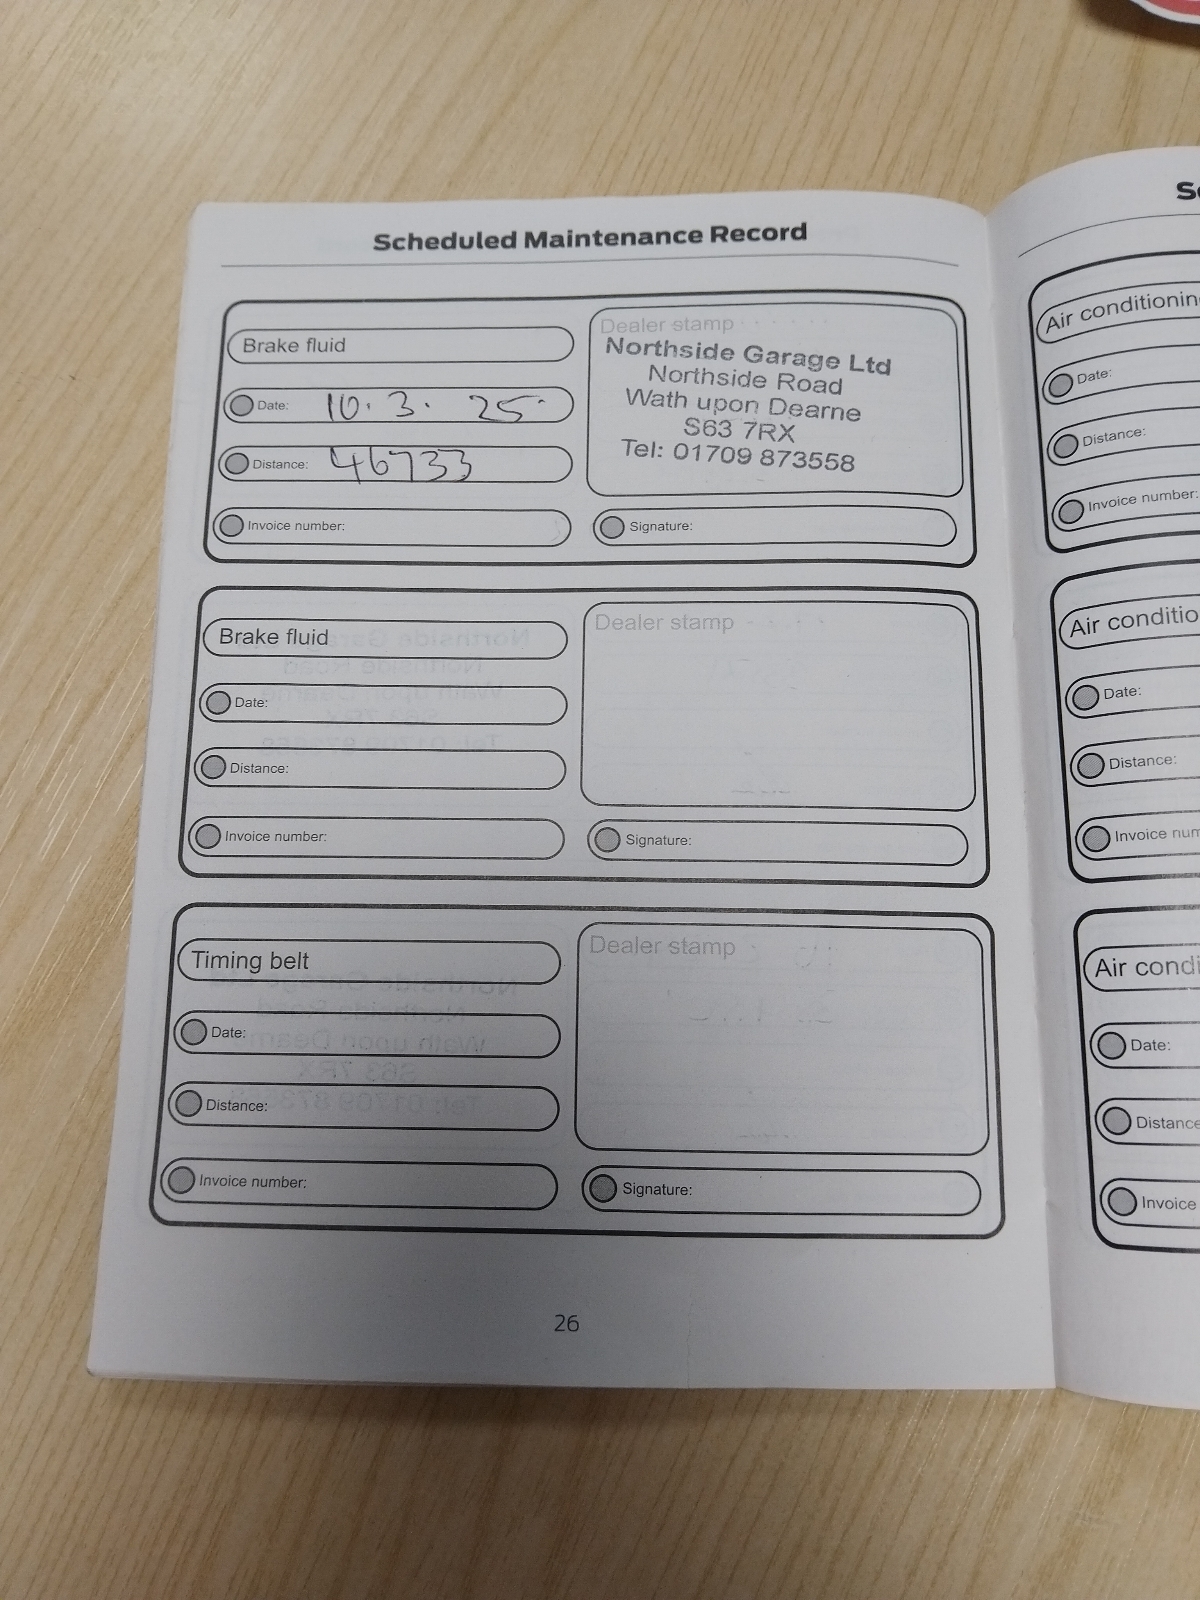 Scheduled Maintenance Record
Brake fluid
Date: 10. 3. 25
Distance: 46733
Invoice number:
Dealer stamp
Northside Garage Ltd
Northside Road
Wath upon Dearne
S63 7RX
Tel: 01709 873558
Signature:
Brake fluid
Date:
Distance:
Invoice number:
Dealer stamp
Signature:
Timing belt
Date:
Distance:
Invoice number:
Dealer stamp
Signature:
26
Air conditioning
Date:
Distance:
Invoice number:
Air conditio
Date:
Distance:
Invoice num
Air condi
Date:
Distance
Invoice